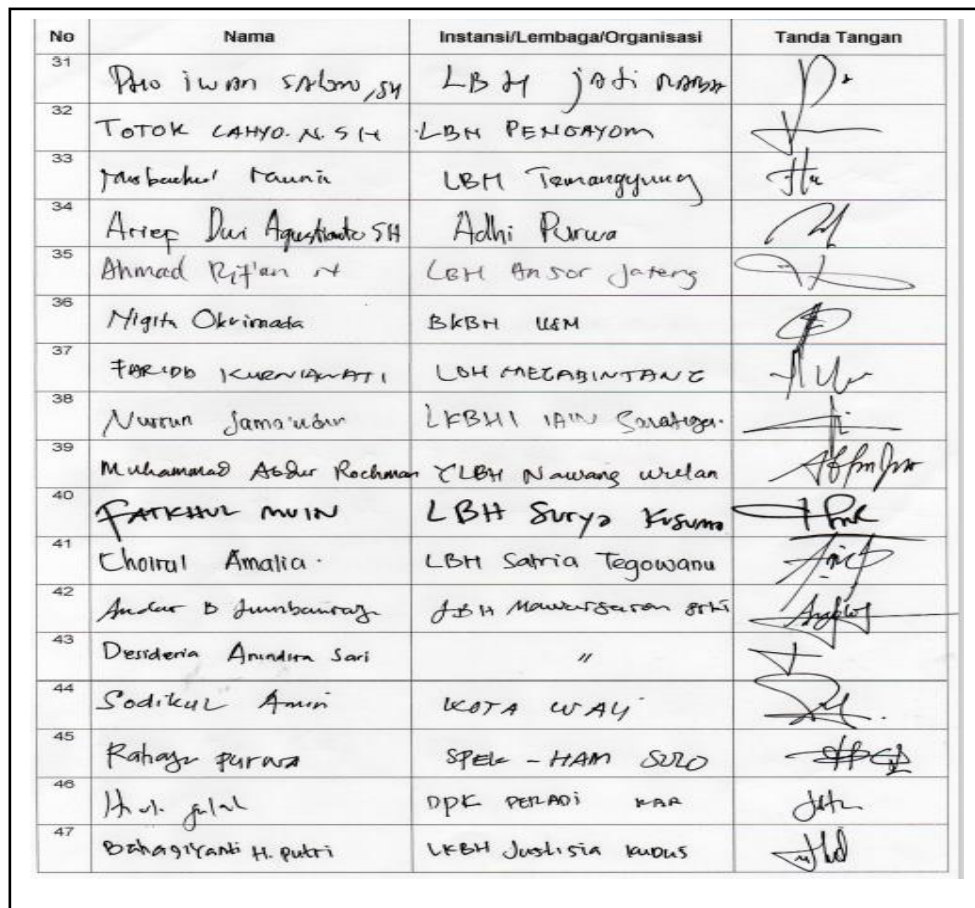 No Nama Instansi/Lembaga/Organisasi Tanda Tangan
31 iwan SH LBH jati
32 TOTOK CAHYO. N. SH LBH PENGAYOM
33 LBH Temanggung
34 Arief Dwi Agustianto SH Adhi Purwa
35 Ahmad Rif'an LBH Ansor Jateng
36 Nigita Okvirnada BKBH USM
37 FARIDA KURNIAWATI LBH MEGABINTANG
38 Nurrun Jama'udin LKBHI IAIN Salatiga.
39 Muhammad Abdur Rochman YLBH Nawang Wulan
40 FATKHUL MUIN LBH Surya Kusuma
41 Choirul Amalia. LBH Satria Tegowanu
42 Andar B LBH Mawar Saron
43 Desideria Anindita Sari "
44 Sodikul Amin KOTA WALI
45 Rahayu Purwa SPEK - HAM SOLO
46 DPK PERADI
47 Bahagiyanti H. Putri LKBH Justisia KUDUS